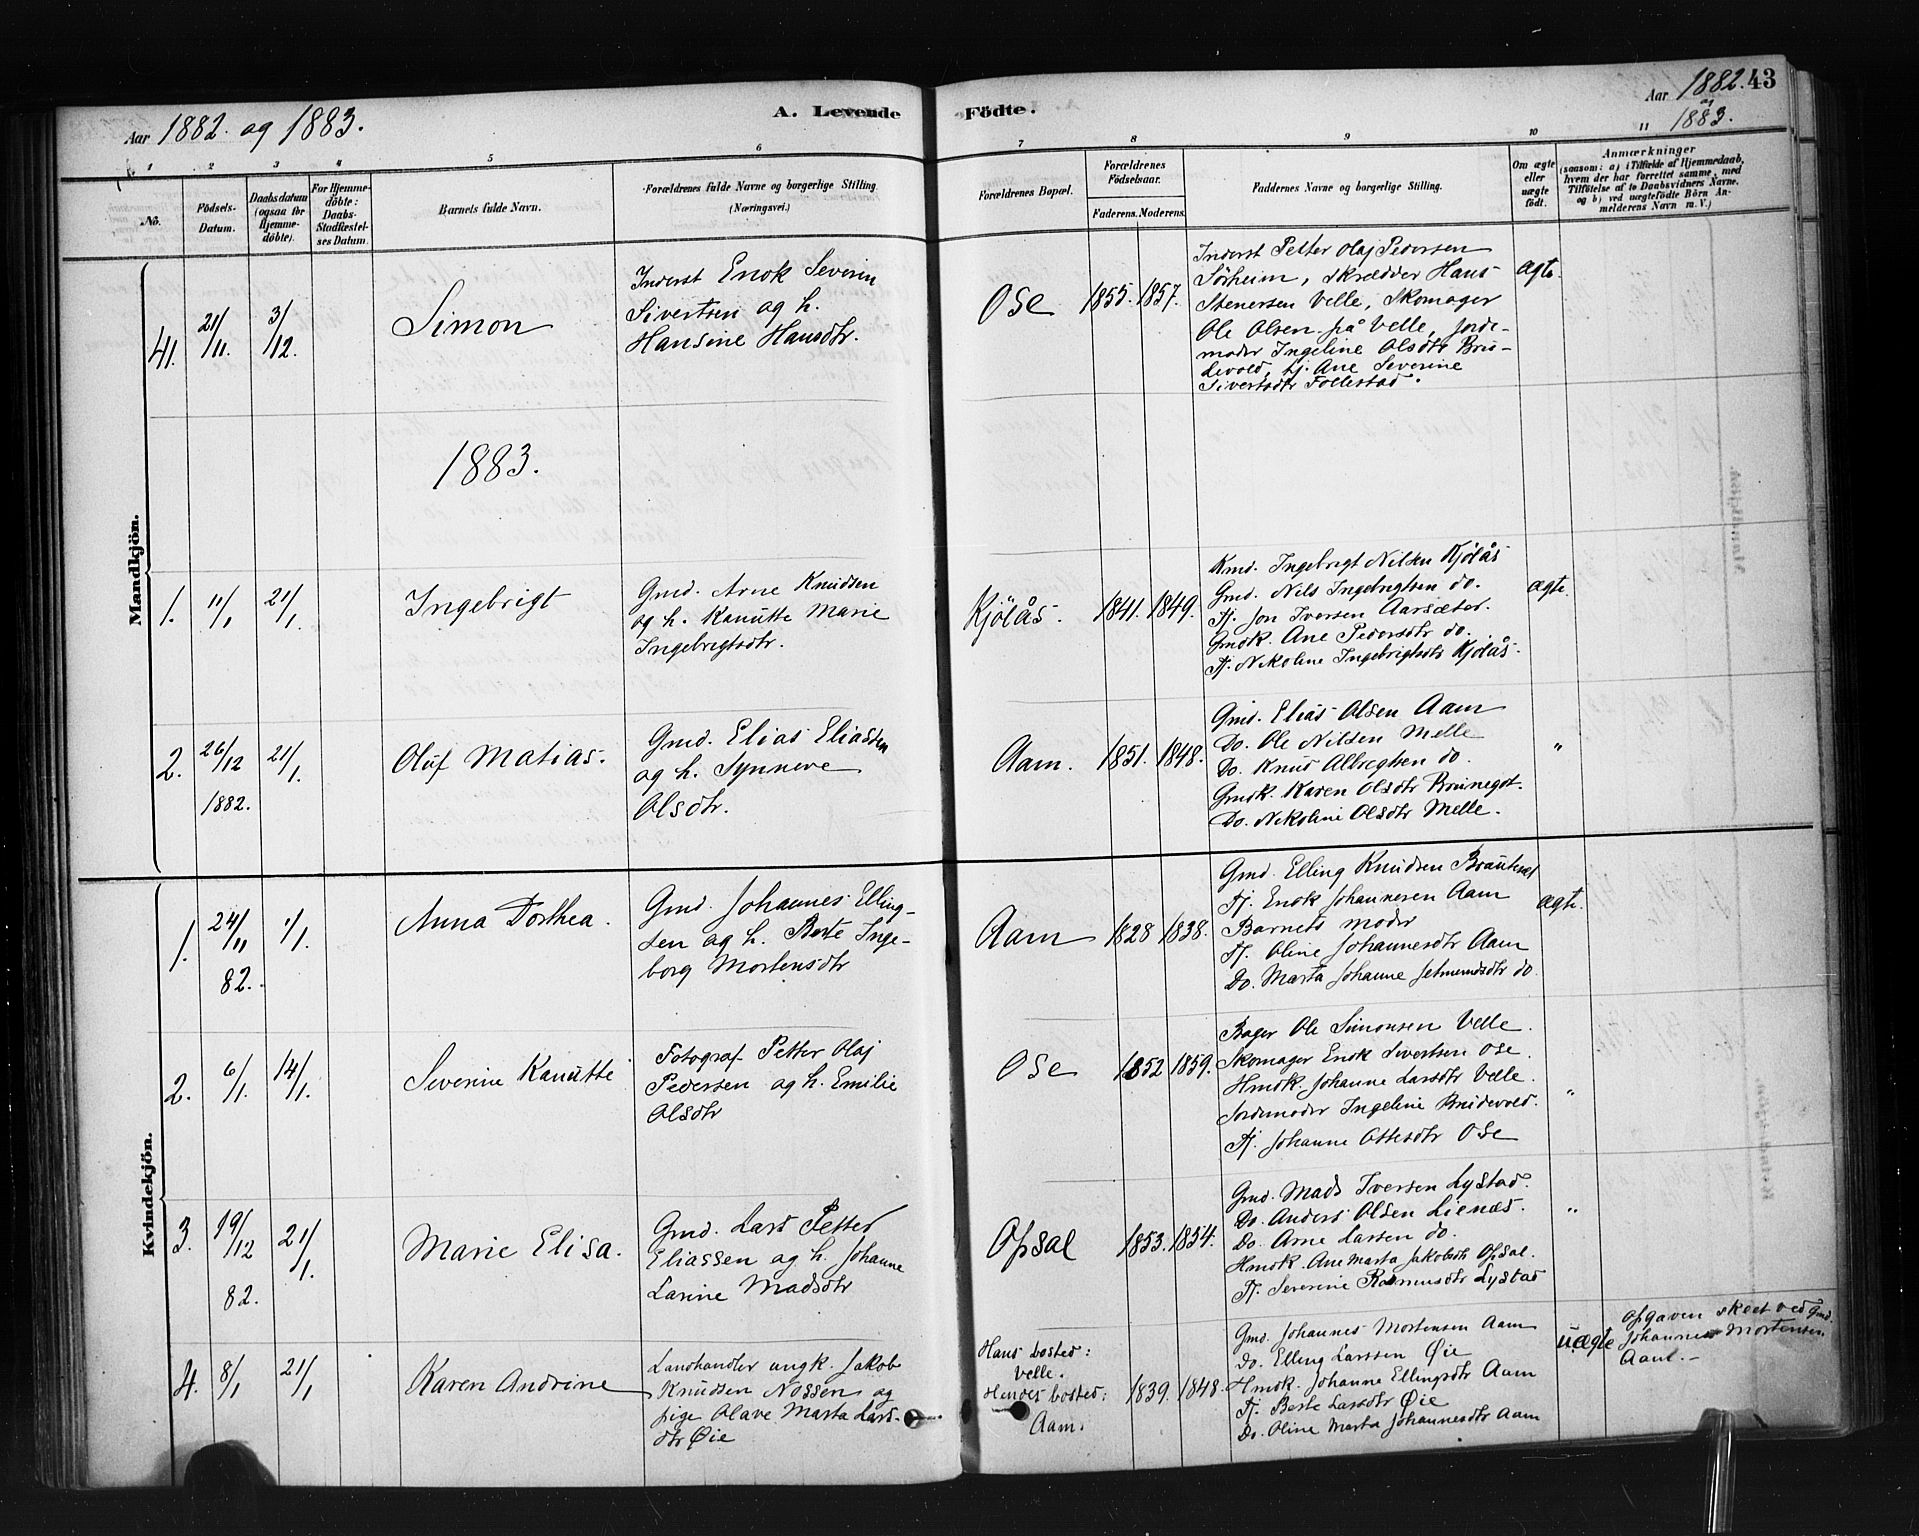 Aar 1882. og 1883.
A. Levende
Födte.
Aar 1882. 43
og
1883.
1
2
3
4
5
6
7
8
9
10
11
No.
Födsels-
Datum.
Daabsdatum
(ogsaa for
Hjemme-
döbte).
For Hjemme-
döbte:
Daabs-
Stadfæstel-
ses Datum.
Barnets fulde Navn.
Forældrenes fulde Navne og borgerlige Stilling.
(Næringsvei.)
Forældrenes Bopæl.
Forældrenes
Födselsaar.
Faderens. Moderens.
Faddernes Navne og borgerlige Stilling.
Om ægte
eller
uægte
født.
Anmærkninger
(saasom: a) i Tilfælde af Hjemmedaab,
hvem der har forrettet samme, med
Tilföielse af to Daabsvidners Navne,
og b) ved uægtefödte Börn An-
melderens Navn m. V.)
Mandkjön.
41.
21/11.
3/12.
Simon
Inderst Enok Severin
Sivertsen og h.
Hansine Hansdtr.
Ose
1855. 1857.
Inderst Petter Olaj Pedersen
Sörheim, skrædder Hans
Stenersen Velle, Skomager
Ole Olsen på Velle, Jorde-
moder Ingeline Olsdtr Bru-
devold, tj. Ane Severine
Sivertsdtr Follestad.
ægte.
1883.
1.
11/1
21/1.
Ingebrigt
Gmd. Arne Knudsen
og h. Kanutte Marie
Ingebrigtsdtr.
Kjölås.
1841. 1849.
Kmd. Ingebrigt Nilsen Kjölås
Gmd. Nils Ingebrigtsen do.
Tj. Jon Iversen Aarsæter.
Gmdk. Ane Pedersdtr do.
Tj. Nikoline Ingebrigtsdtr Kjölås.
ægte.
2.
26/12
1882.
21/1.
Oluf Matias.
Gmd. Elias Eliassen
og h. Synneve
Olsdtr.
Aam.
1851. 1848.
Gmd. Elias Olsen Aam
Do. Ole Nilsen Melle
Do. Knud Albregtsen do.
Gmdk. Karen Olsdtr Brunegot.
Do. Nikoline Olsdtr Melle.
"
Kvindekjön.
1.
24/11
82.
1/1.
Anna Dorthea.
Gmd. Johannes Elling-
sen og h. Berte Inge-
borg Mortensdtr
Aam
1828 1838.
Gmd. Elling Knudsen
Tj. Enok Johannesen Aam
Barnets moder
Tj. Oline Johannesdtr Aam
Do. Marta Johanne Jetmundsdtr do.
ægte.
2.
6/1.
14/1.
Severine Kanutte
Fotograf Petter Olaj
Pedersen og h. Emilie
Olsdtr
Ose
1852 1859.
Bager Ole Simonsen Velle.
Skomager Enok Sivertsen Ose.
Hmdk. Johanne Larsdtr Velle.
Jordemoder Ingeline Brudevold.
Tj. Johanne Ottesdtr Ose
"
3.
19/12
82.
21/1.
Marie Elisa.
Gmd. Lars Petter
Eliassen og h. Johanne
Larine Madsdtr
Opsal
1853. 1854.
Gmd. Mads Iversen Lystad.
Do. Anders Olsen Lienæs.
Do. Arne Larsen do.
Hmdk. Ane Marta Jakobsdtr Opsal.
Tj. Severine Rasmusdtr Lystad
"
4.
8/1
21/1
Karen Andrine
Landhandler ungk. Jakob
Knudsen Nossen og
pige Olave Marta Lars-
dtr Øie
Hans bosted:
Velle.
Hendes bosted:
Aam.
1839. 1848.
Gmd. Johannes Mortensen Aam
Do. Elling Larssen Øie
Hmdk. Johanne Ellingsdtr Aam
Tj. Berte Larsdtr Øie
Do. Oline Marta Johannesdtr Aam
uægte
Opgaven skeet ved Gmd.
Johannes Mortensen
Aam.